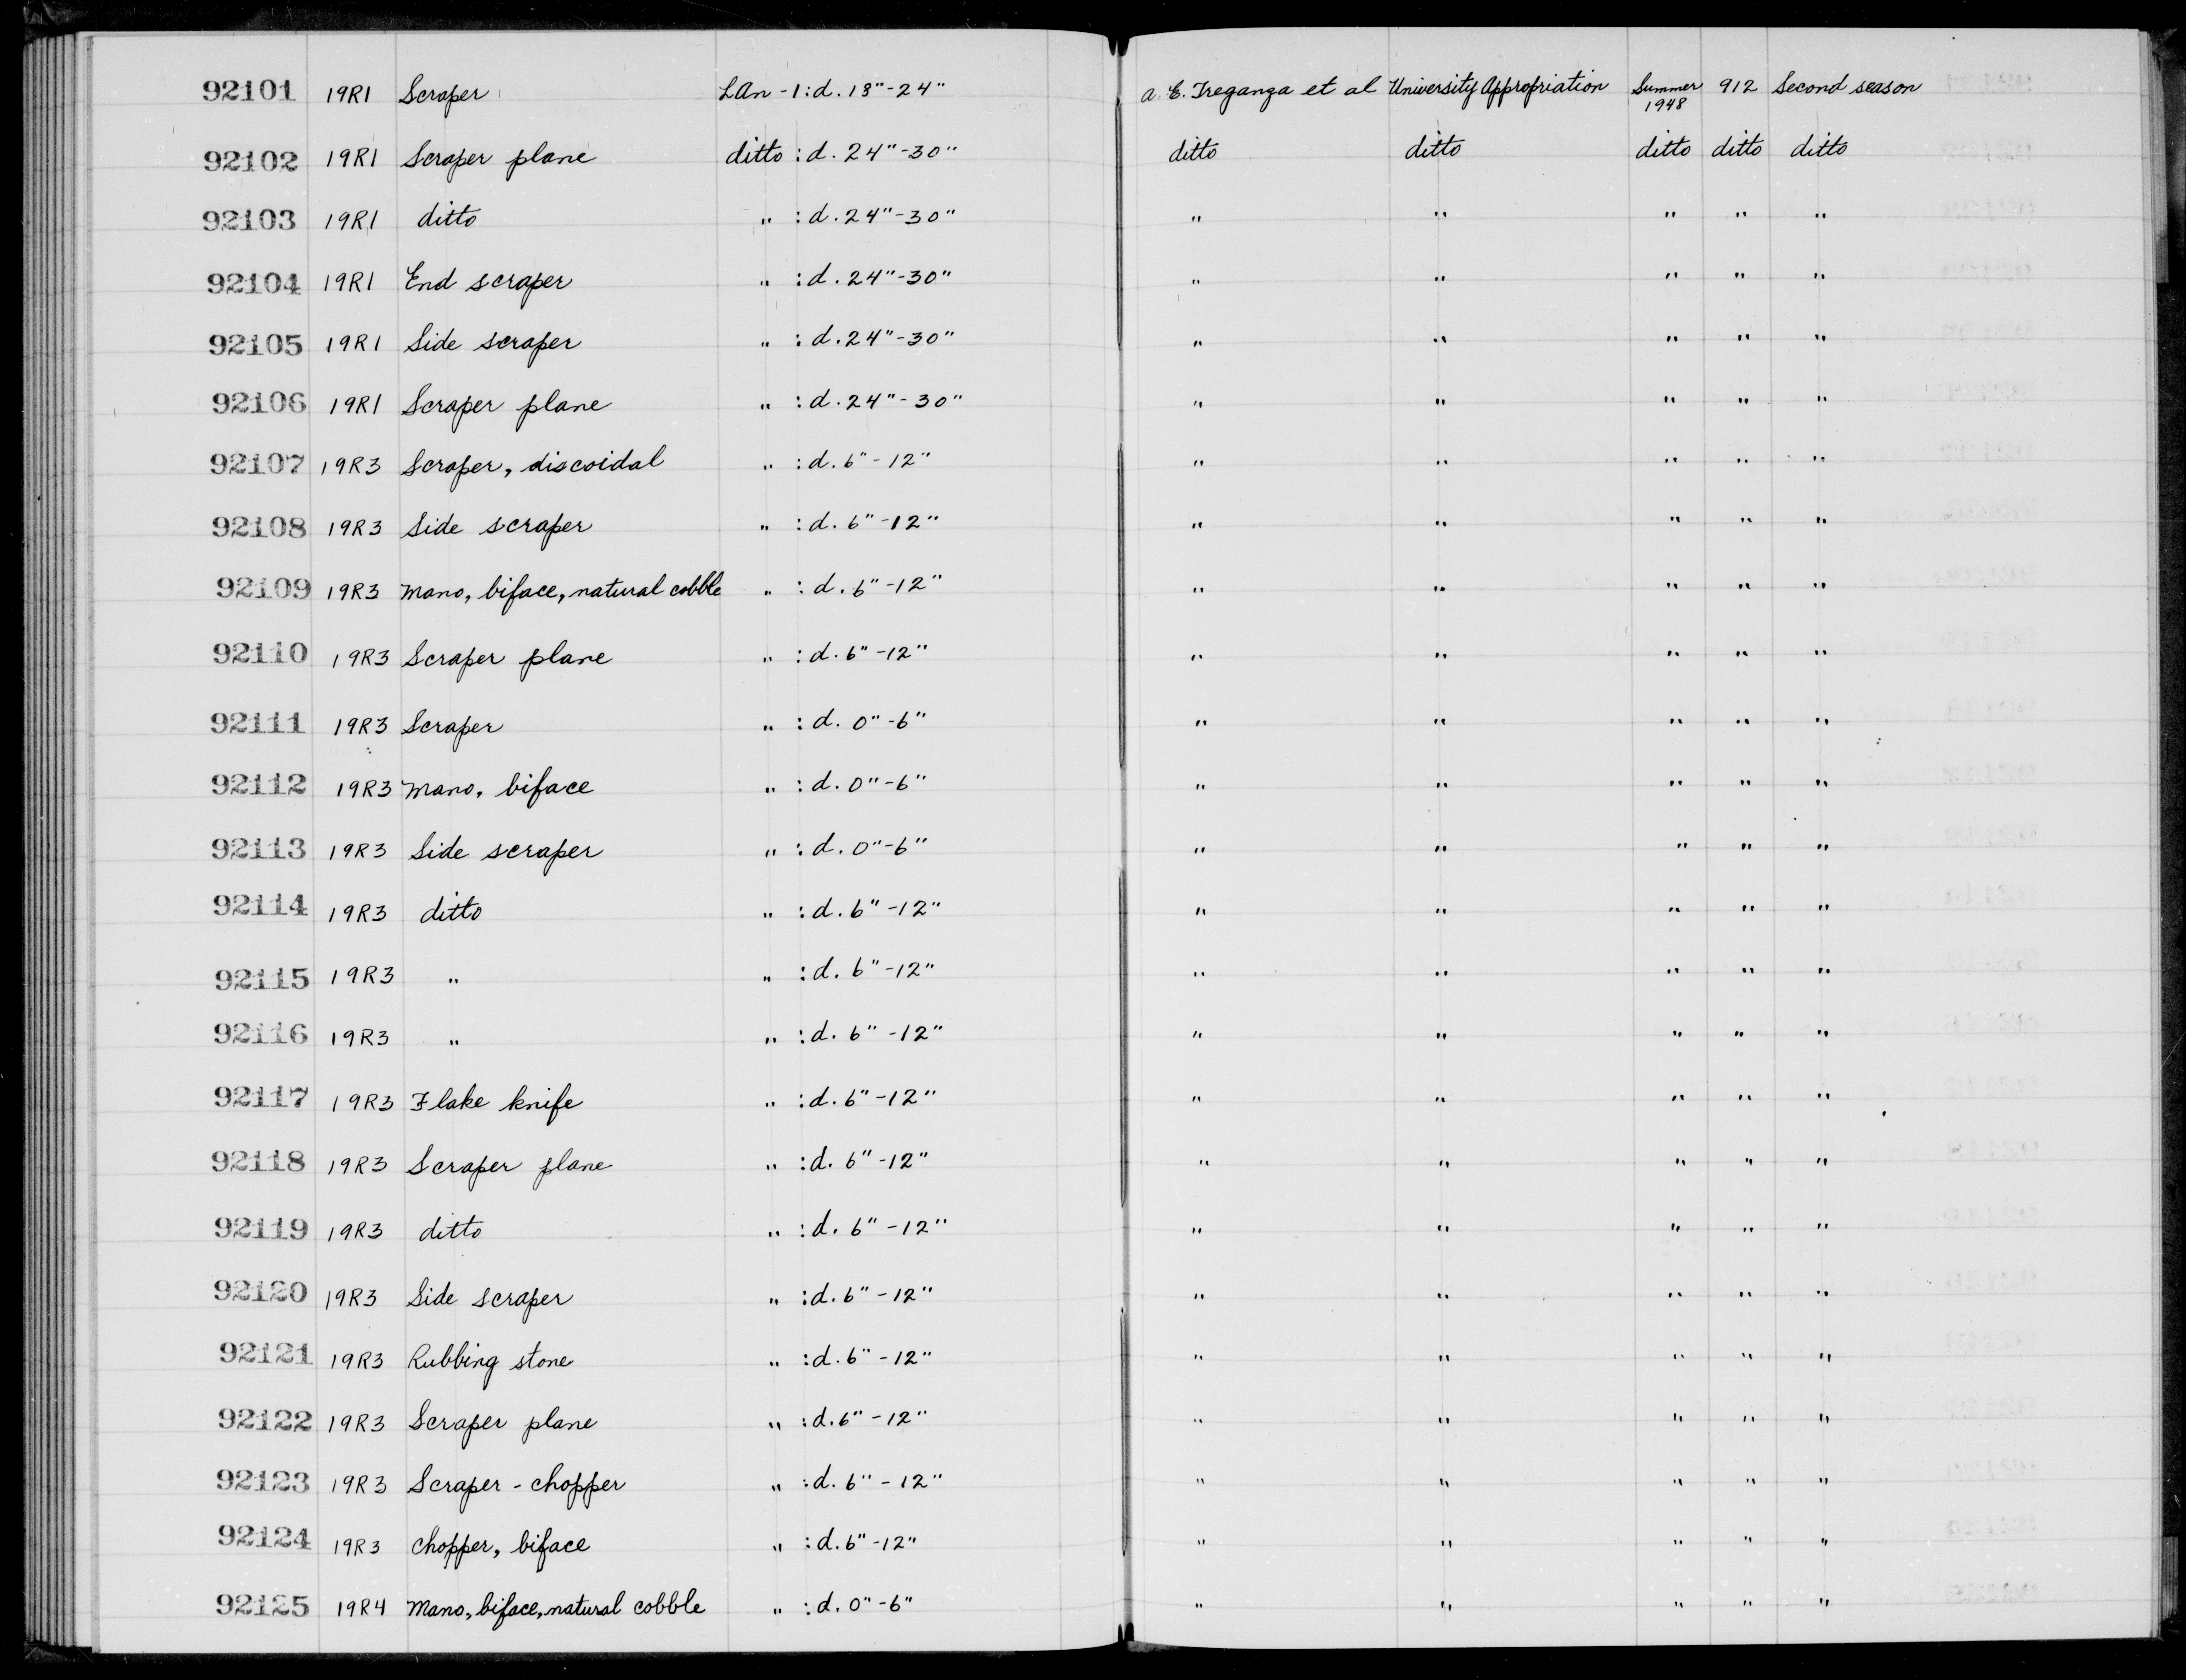 92101 19R1 Scraper LAn-1:d. 18"-24" A. E. Treganza et al University Appropriation Summer 1948 912 Second season
92102 19R1 Scraper plane ditto :d. 24"-30" ditto ditto ditto ditto ditto
92103 19R1 ditto " :d. 24"-30" " " " " "
92104 19R1 End scraper " :d. 24"-30" " " " " "
92105 19R1 Side scraper " :d. 24"-30" " " " " "
92106 19R1 Scraper plane " :d. 24"-30" " " " " "
92107 19R3 Scraper, discoidal " :d. 6"-12" " " " " "
92108 19R3 Side scraper " :d. 6"-12" " " " " "
92109 19R3 Mano, biface, natural cobble " :d. 6"-12" " " " " "
92110 19R3 Scraper plane " :d. 6"-12" " " " " "
92111 19R3 Scraper " :d. 0"-6" " " " " "
92112 19R3 Mano, biface " :d. 0"-6" " " " " "
92113 19R3 Side scraper " :d. 0"-6" " " " " "
92114 19R3 ditto " :d. 6"-12" " " " " "
92115 19R3 " " :d. 6"-12" " " " " "
92116 19R3 " " :d. 6"-12" " " " " "
92117 19R3 Flake knife " :d. 6"-12" " " " " "
92118 19R3 Scraper plane " :d. 6"-12" " " " " "
92119 19R3 ditto " :d. 6"-12" " " " " "
92120 19R3 Side scraper " :d. 6"-12" " " " " "
92121 19R3 Rubbing stone " :d. 6"-12" " " " " "
92122 19R3 Scraper plane " :d. 6"-12" " " " " "
92123 19R3 Scraper-chopper " :d. 6"-12" " " " " "
92124 19R3 Chopper, biface " :d. 6"-12" " " " " "
92125 19R4 Mano, biface, natural cobble " :d. 0"-6" " " " " "